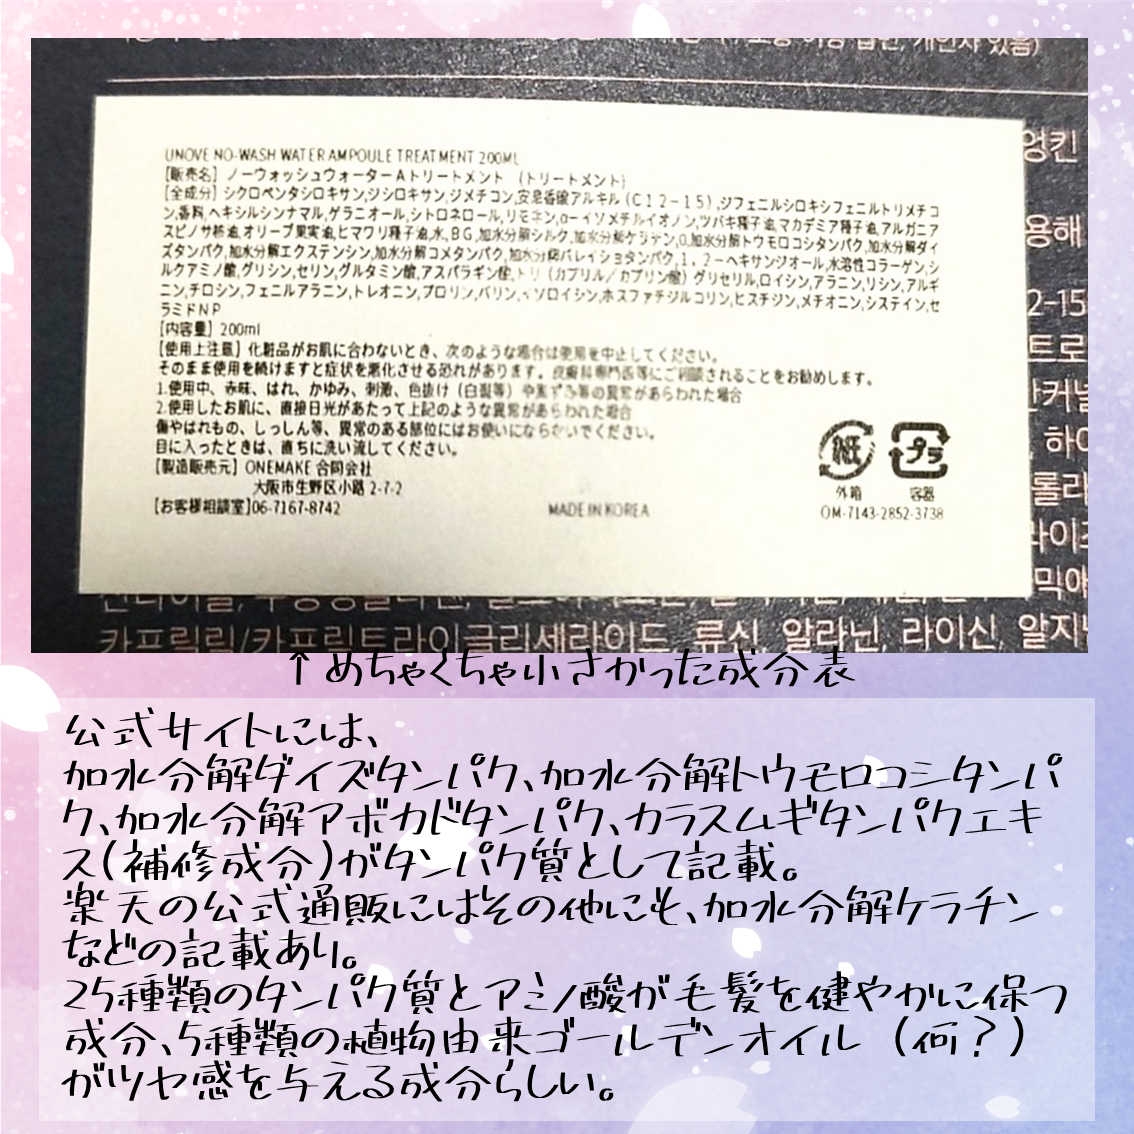 UNOVE NO-WASH WATER AMPOULE TREATMENT 200ML
[販売名] ノーウォッシュウォーターAトリートメント (トリートメント)
[全成分] シクロペンタシロキサン,ジシロキサン,ジメチコン,安息香酸アルキル(C12-15),ジフェニルシロキシフェニルトリメチコ
ン,香料,ヘキシルシンナマル,ゲラニオール,シトロネロール,リモネン,α-イソメチルイオノン,ツバキ種子油,マカデミア種子油,アルガニア
スピノサ核油,オリーブ果実油,ヒマワリ種子油,水,BG,加水分解シルク,加水分解ケラチン,加水分解トウモロコシタンパク,加水分解ダイ
ズタンパク,加水分解エクステンシン,加水分解コメタンパク,加水分解バレイショタンパク,1,2-ヘキサンジオール,水溶性コラーゲン,シ
ルクアミノ酸,グリシン,セリン,グルタミン酸,アスパラギン酸,トリ(カプリル/カプリン酸)グリセリル,ロイシン,アラニン,リシン,アルギ
ニン,チロシン,フェニルアラニン,トレオニン,プロリン,バリン,イソロイシン,ホスファチジルコリン,ヒスチジン,メチオニン,システイン,セ
ラミドNP
[内容量] 200ml
[使用上注意] 化粧品がお肌に合わないとき、次のような場合は使用を中止してください。
そのまま使用を続けますと症状を悪化させる恐れがあります。皮膚科専門医等にご相談されることをお勧めします。
1.使用中、赤味、はれ、かゆみ、刺激、色抜け(白斑等)や黒ずみ等の異常があらわれた場合
2.使用したお肌に、直接日光があたって上記のような異常があらわれた場合
傷やはれもの、しっしん等、異常のある部位にはお使いにならないでください。
目に入ったときは、直ちに洗い流してください。
[製造販売元] ONEMAKE 合同会社
大阪市生野区小路 2-7-2
[お客様相談室]06-7167-8742
MADE IN KOREA
紙 プラ
外箱 容器
OM-7143-2852-3738
엉킨
용해
2-15
트로
, 하이
카프릴릭/카프릭트라이글리세라이드, 류신, 알라닌, 라이신, 알지
↑めちゃくちゃ小さかった成分表
公式サイトには、
加水分解ダイズタンパク、加水分解トウモロコシタンパ
ク、加水分解アボカドタンパク、カラスムギタンパクエキ
ス(補修成分)がタンパク質として記載。
楽天の公式通販にはその他にも、加水分解ケラチン
などの記載あり。
25種類のタンパク質とアミノ酸が毛髪を健やかに保つ
成分、5種類の植物由来ゴールデンオイル (何?)
がツヤ感を与える成分らしい。